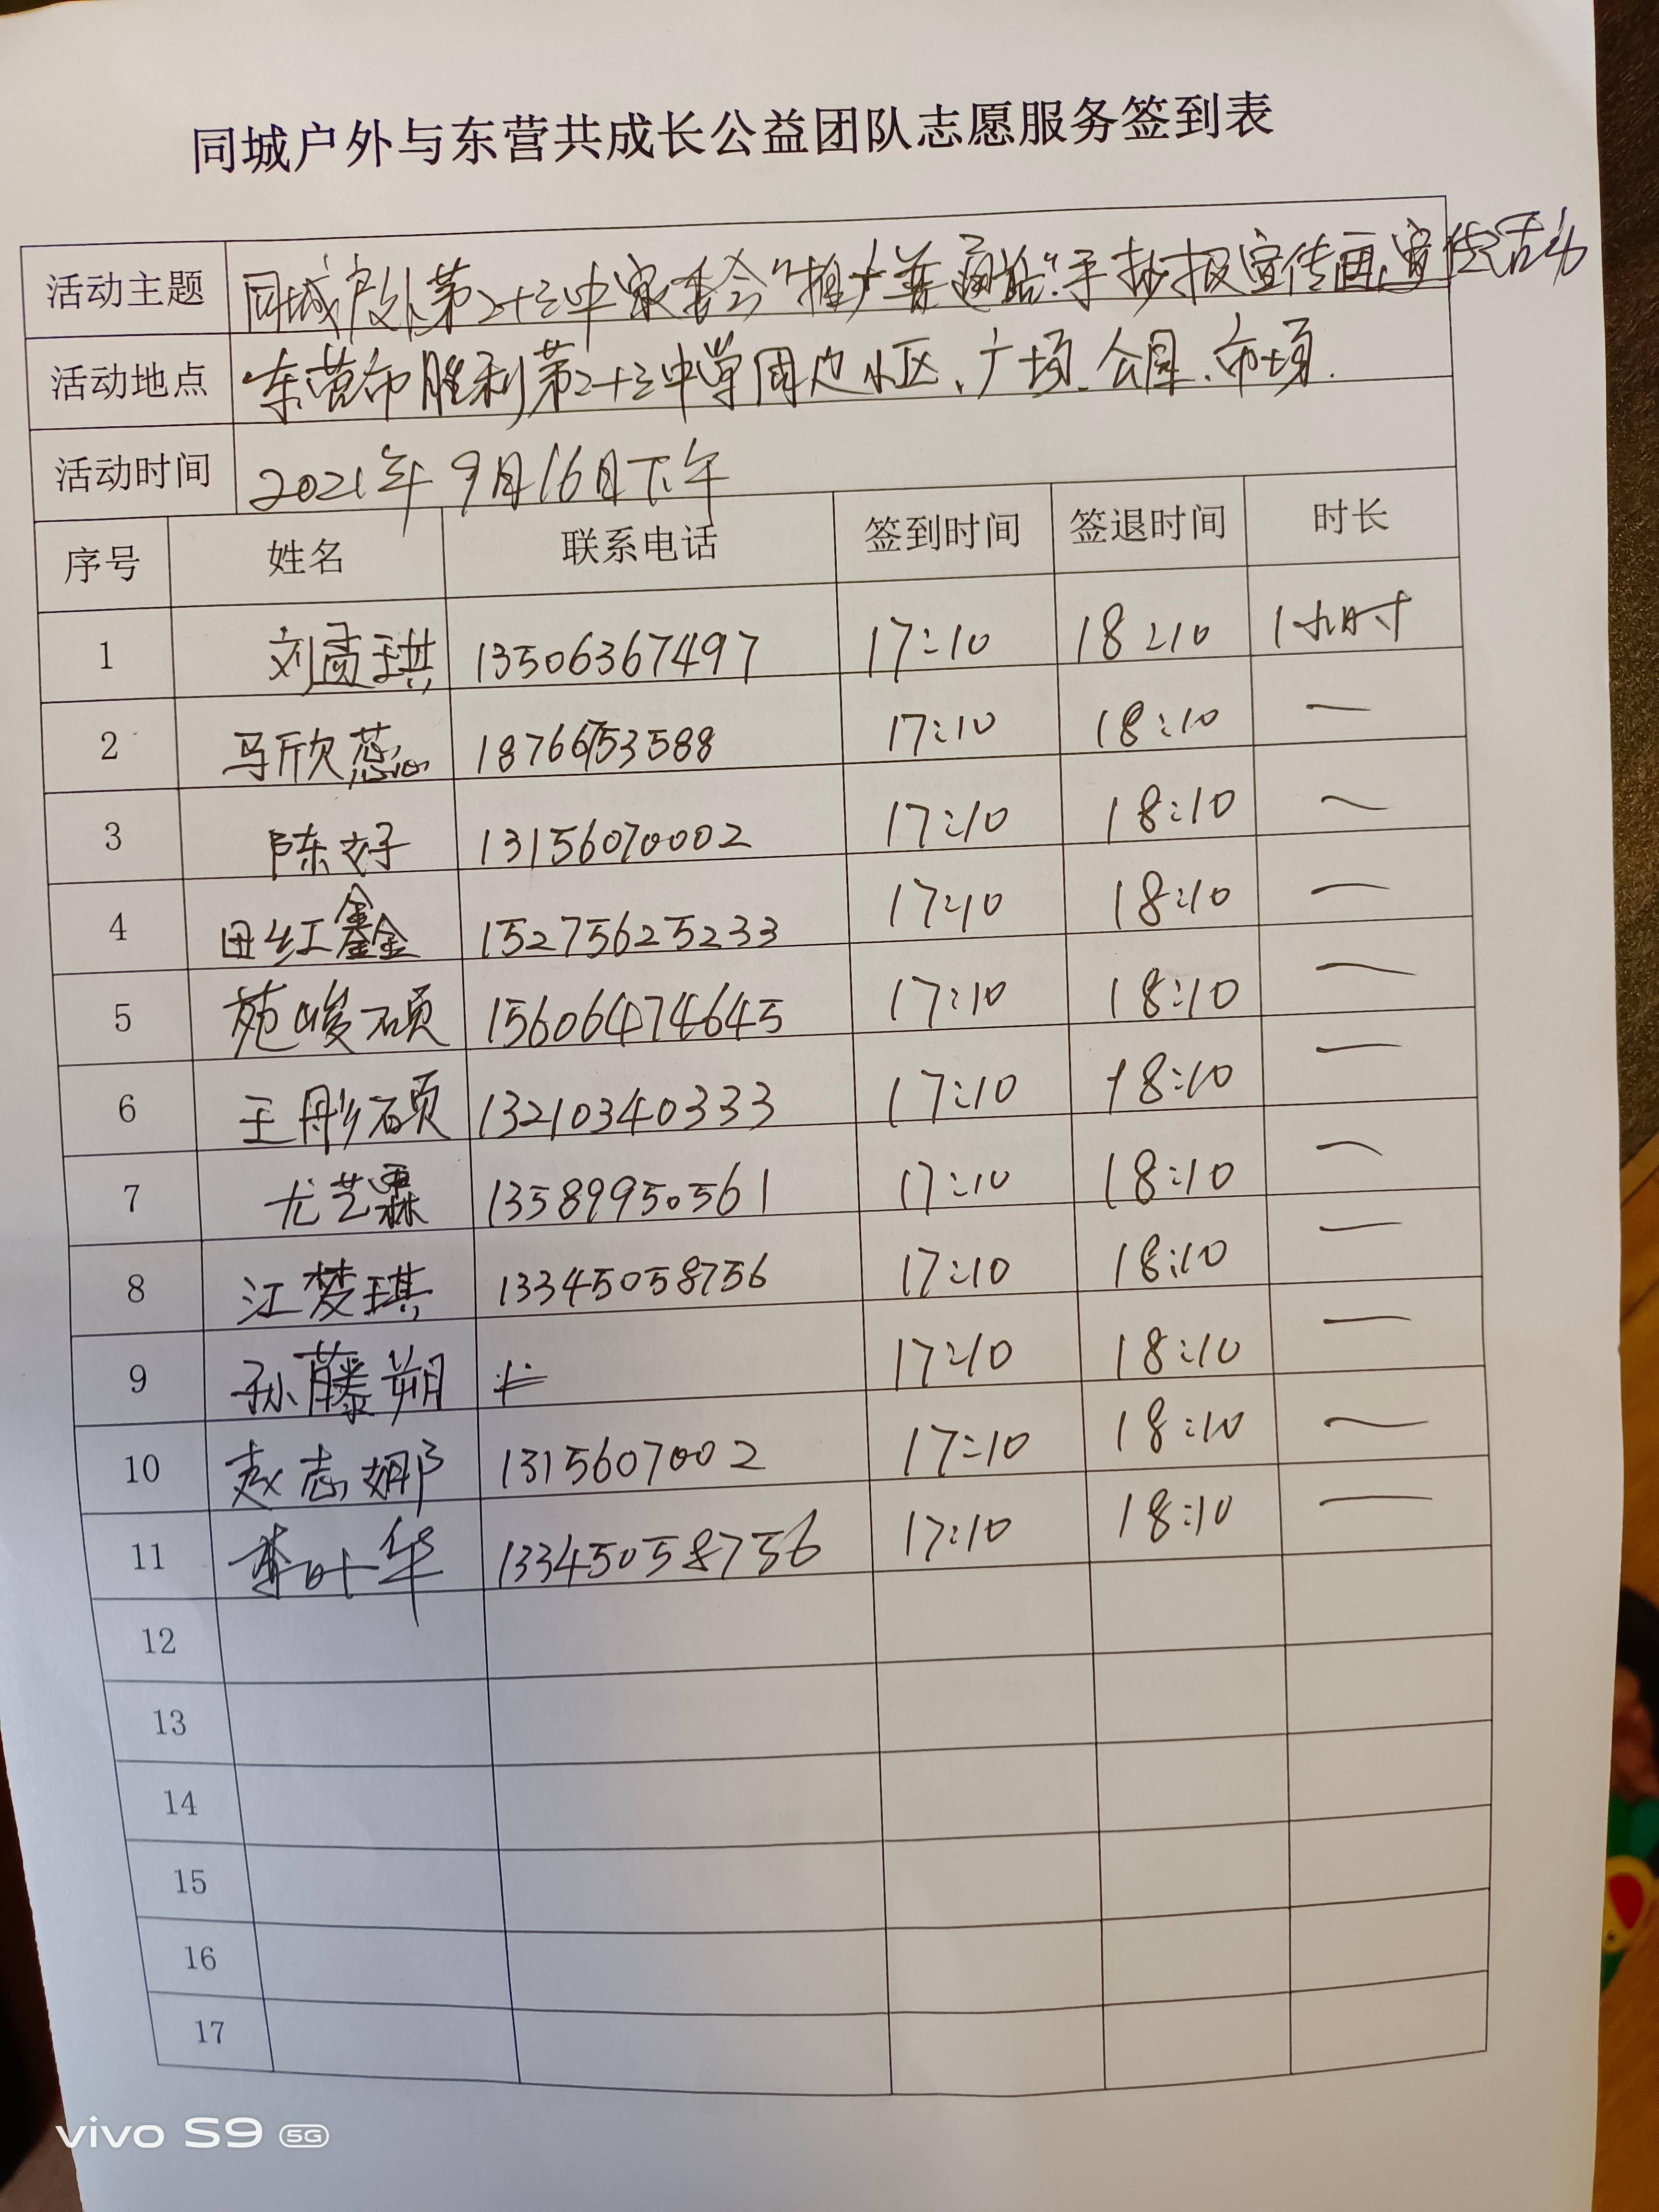 同城户外与东营共成长公益团队志愿服务签到表
活动主题 同城户外第二十三中家委会"推广普通话"手抄报宣传画宣传活动
活动地点 东营市胜利第二十三中学周边小区、广场、公园、市场.
活动时间 2021年9月16日下午
序号 姓名 联系电话 签到时间 签退时间 时长
1 刘孟琪 13506367497 17:10 18:10 1小时
2 马欣蕊 18766753588 17:10 18:10 一
3 陈好 13156070002 17:10 18:10 一
4 田红鑫 15275625233 17:10 18:10 一
5 苑峻硕 15606474645 17:10 18:10 一
6 王彤硕 13210340333 17:10 18:10 一
7 尤艺霖 13589950561 17:10 18:10 一
8 江梦琪 13345058756 17:10 18:10 一
9 孙藤朔 17:10 18:10 一
10 赵志娜 1315607002 17:10 18:10 一
11 李叶华 13345058756 17:10 18:10 一
12
13
14
15
16
17
vivo S9 5G